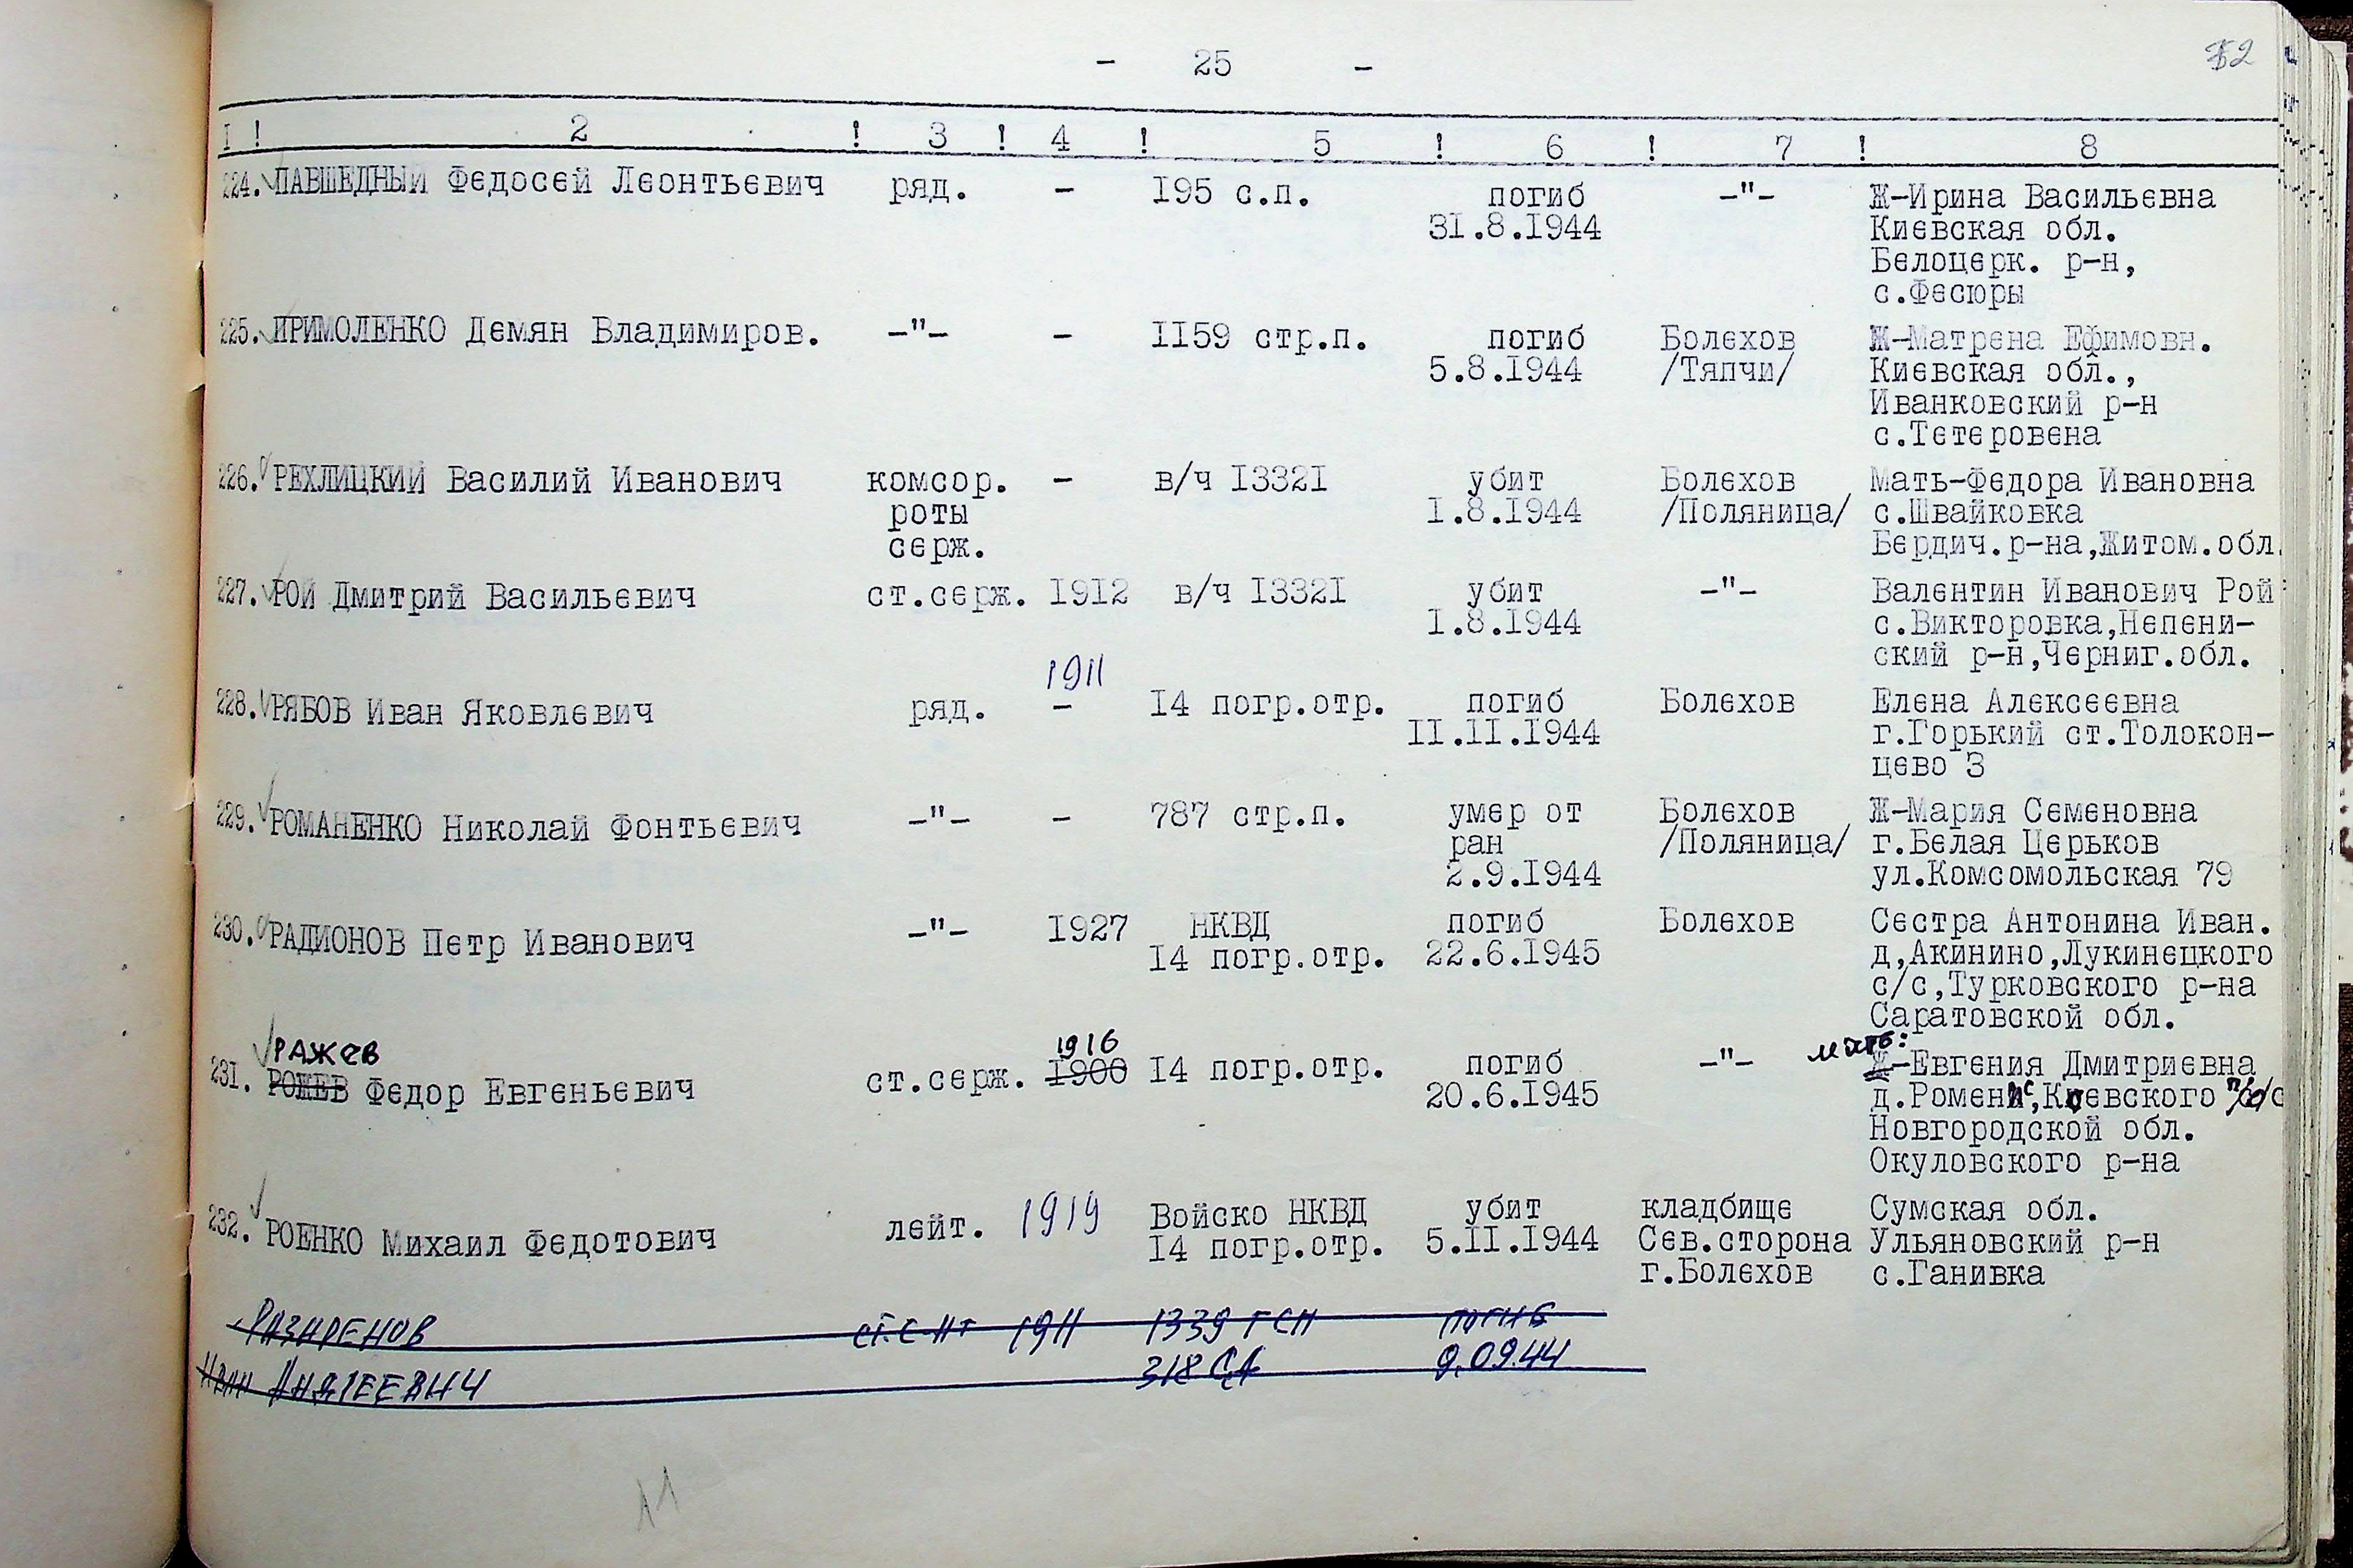 - 25 -
I ! 2 ! 3 ! 4 ! 5 ! 6 ! 7 ! 8
224. ПАВШЕДНЫЙ Федосей Леонтьевич ряд. - 195 с.п. погиб -"- Ж-Ирина Васильевна
31.8.1944 Киевская обл.
Белоцерк. р-н,
с.Фесюры
225. ПРИМОЛЕНКО Демян Владимиров. -"- - 1159 стр.п. погиб Болехов Ж-Матрена Ефимовн.
5.8.1944 /Тяпчи/ Киевская обл.,
Иванковский р-н
с.Тетеровена
226. РЕХЛИЦКИЙ Василий Иванович комсор. - в/ч 13321 убит Болехов Мать-Федора Ивановна
роты 1.8.1944 /Поляница/ с.Швайковка
серж. Бердич.р-на,Житом.обл.
227. РОЙ Дмитрий Васильевич ст.серж. 1912 в/ч 13321 убит -"- Валентин Иванович Рой
1.8.1944 с.Викторовка,Непени-
ский р-н,Черниг.обл.
1911
228. РЯБОВ Иван Яковлевич ряд. - 14 погр.отр. погиб Болехов Елена Алексеевна
11.11.1944 г.Горький ст.Толокон-
цево 3
229. РОМАНЕНКО Николай Фонтьевич -"- - 787 стр.п. умер от Болехов Ж-Мария Семеновна
ран /Поляница/ г.Белая Церьков
2.9.1944 ул.Комсомольская 79
230. РАДИОНОВ Петр Иванович -"- 1927 НКВД погиб Болехов Сестра Антонина Иван.
14 погр.отр. 22.6.1945 д,Акинино,Лукинецкого
с/с,Турковского р-на
Саратовской обл.
РАЖЕВ 1916 мать:
231. РОЖЕВ Федор Евгеньевич ст.серж. 1900 14 погр.отр. погиб -"- Ж-Евгения Дмитриевна
20.6.1945 д.Ромени,Коевского
Новгородской обл.
Окуловского р-на
232. РОЕНКО Михаил Федотович лейт. 1919 Войско НКВД убит кладбище Сумская обл.
14 погр.отр. 5.11.1944 Сев.сторона Ульяновский р-н
г.Болехов с.Ганивка
РАЗИРЕНОВ ст.с-нт 1911 1339 ГСП погиб
Иван Андреевич 318 СД 9.09.44
11